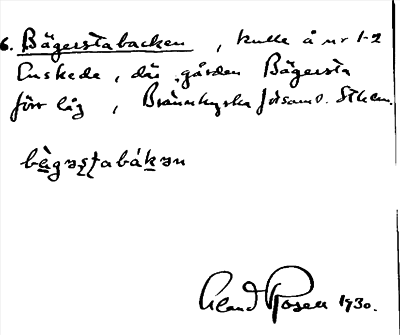 6. Bägerstabacken, kulle å nr 1-2
Enskede, där gården Bägersta
förr låg, Brännkyrka förs. o. Sthlm.
bàgəʂʈabákən
Rosell 1930.